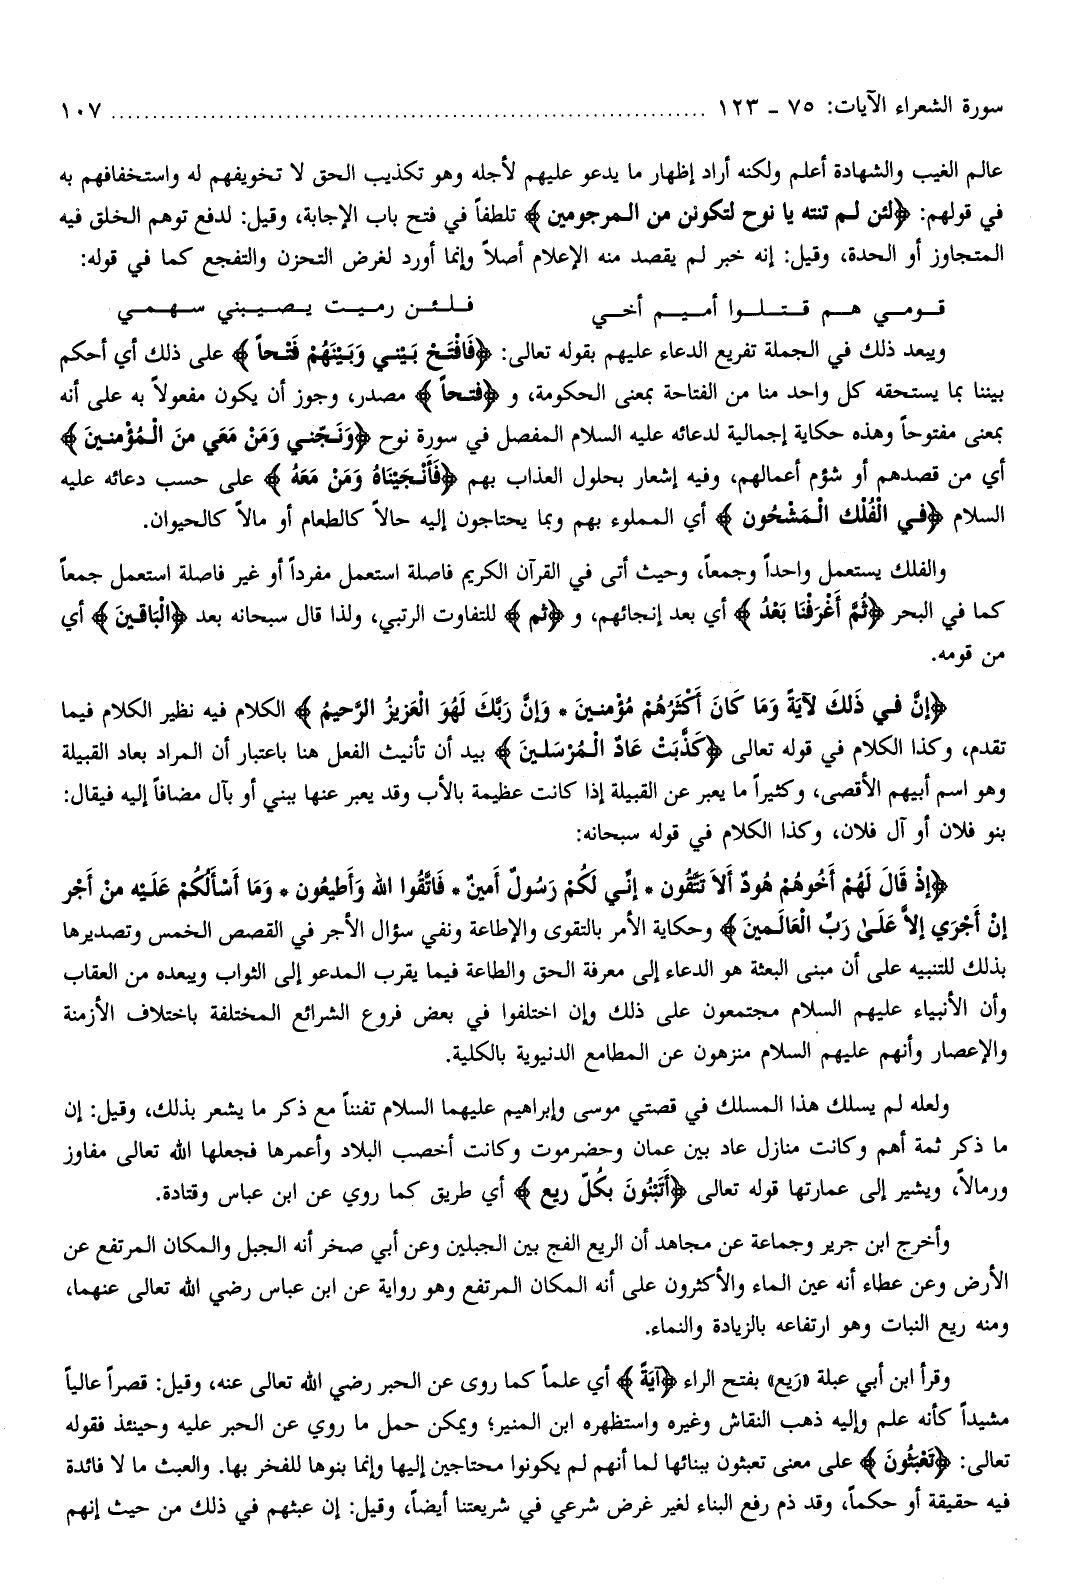 سورة الشعراء الآيات: ٧٥ ـ ١٢٣ ........................................................................ ١٠٧
عالم الغيب والشهادة أعلم ولكنه أراد إظهار ما يدعو عليهم لأجله وهو تكذيب الحق لا تخويفهم له واستخفافهم به
في قولهم: ﴿لئن لم تنته يا نوح لتكونن من المرجومين﴾ تلطفاً في فتح باب الإجابة، وقيل: لدفع توهم الخلق فيه
المتجاوز أو الحدة، وقيل: إنه خبر لم يقصد منه الإعلام أصلاً وإنما أورد لغرض التحزن والتفجع كما في قوله:
قومي هم قتلوا أميم أخي فلئن رميت يصيبني سهمي
ويبعد ذلك في الجملة تفريع الدعاء عليهم بقوله تعالى: ﴿فَافْتَحْ بَيْني وَبَيْنَهُمْ فَتْحاً﴾ على ذلك أي أحكم
بيننا بما يستحقه كل واحد منا من الفتاحة بمعنى الحكومة، و ﴿فتحاً﴾ مصدر، وجوز أن يكون مفعولاً به على أنه
بمعنى مفتوحاً وهذه حكاية إجمالية لدعائه عليه السلام المفصل في سورة نوح ﴿وَنَجّني وَمَنْ مَعَي منَ الْمُؤْمنينَ﴾
أي من قصدهم أو شؤم أعمالهم، وفيه إشعار بحلول العذاب بهم ﴿فَأَنْجَيْنَاهُ وَمَنْ مَعَهُ﴾ على حسب دعائه عليه
السلام ﴿في الْفُلْك الْمَشْحُون﴾ أي المملوء بهم وبما يحتاجون إليه حالاً كالطعام أو مالاً كالحيوان.
والفلك يستعمل واحداً وجمعاً، وحيث أتى في القرآن الكريم فاصلة استعمل مفرداً أو غير فاصلة استعمل جمعاً
كما في البحر ﴿ثُمَّ أَغْرَقْنَا بَعْدُ﴾ أي بعد إنجائهم، و ﴿ثم﴾ للتفاوت الرتبي، ولذا قال سبحانه بعد ﴿الْبَاقينَ﴾ أي
من قومه.
﴿إنَّ في ذَلكَ لآيَةً وَمَا كَانَ أَكْثَرُهُمْ مُؤْمنينَ * وَإنَّ رَبَّكَ لَهُوَ الْعَزيزُ الرَّحيمُ﴾ الكلام فيه نظير الكلام فيما
تقدم، وكذا الكلام في قوله تعالى ﴿كَذَّبَتْ عَادٌ الْمُرْسَلينَ﴾ بيد أن تأنيث الفعل هنا باعتبار أن المراد بعاد القبيلة
وهو اسم أبيهم الأقصى، وكثيراً ما يعبر عن القبيلة إذا كانت عظيمة بالأب وقد يعبر عنها ببني أو بآل مضافاً إليه فيقال:
بنو فلان أو آل فلان، وكذا الكلام في قوله سبحانه:
﴿إذْ قَالَ لَهُمْ أَخُوهُمْ هُودٌ أَلاَ تَتَّقُون * إنّي لَكُمْ رَسُولٌ أَمينٌ * فَاتَّقُوا الله وَأَطيعُون * وَمَا أَسْأَلُكُمْ عَلَيْه منْ أَجْر
إنْ أَجْرِي إلاَّ عَلَىٰ رَبِّ الْعَالَمينَ﴾ وحكاية الأمر بالتقوى والإطاعة ونفي سؤال الأجر في القصص الخمس وتصديرها
بذلك للتنبيه على أن مبنى البعثة هو الدعاء إلى معرفة الحق والطاعة فيما يقرب المدعو إلى الثواب ويبعده من العقاب
وأن الأنبياء عليهم السلام مجتمعون على ذلك وإن اختلفوا في بعض فروع الشرائع المختلفة باختلاف الأزمنة
والإعصار وأنهم عليهم السلام منزهون عن المطامع الدنيوية بالكلية.
ولعله لم يسلك هذا المسلك في قصتي موسى وإبراهيم عليهما السلام تفنناً مع ذكر ما يشعر بذلك، وقيل: إن
ما ذكر ثمة أهم وكانت منازل عاد بين عمان وحضرموت وكانت أخصب البلاد وأعمرها فجعلها الله تعالى مفاوز
ورمالاً، ويشير إلى عمارتها قوله تعالى ﴿أَتَبْنُونَ بكُلّ ريع﴾ أي طريق كما روي عن ابن عباس وقتادة.
وأخرج ابن جرير وجماعة عن مجاهد أن الريع الفج بين الجبلين وعن أبي صخر أنه الجبل والمكان المرتفع عن
الأرض وعن عطاء أنه عين الماء والأكثرون على أنه المكان المرتفع وهو رواية عن ابن عباس رضي الله تعالى عنهما،
ومنه ريع النبات وهو ارتفاعه بالزيادة والنماء.
وقرأ ابن أبي عبلة «رَيع» بفتح الراء ﴿آيَةً﴾ أي علماً كما روى عن الحبر رضي الله تعالى عنه، وقيل: قصراً عالياً
مشيداً كأنه علم وإليه ذهب النقاش وغيره واستظهره ابن المنير؛ ويمكن حمل ما روي عن الحبر عليه وحينئذ فقوله
تعالى: ﴿تَعْبَثُونَ﴾ على معنى تعبثون ببنائها لما أنهم لم يكونوا محتاجين إليها وإنما بنوها للفخر بها. والعبث ما لا فائدة
فيه حقيقة أو حكماً، وقد ذم رفع البناء لغير غرض شرعي في شريعتنا أيضاً، وقيل: إن عبثهم في ذلك من حيث إنهم